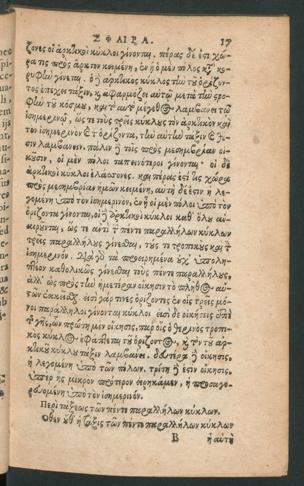 ΣΦΑΙΡΑ. 17
ζονες οἱ ἀρκτικοὶ κύκλοι γίνονται. πέρας δέ ἐστι χώ-
ρα τις πρὸς ἄρκτον κειμένη, ἐν ᾗ ὁ μὲν πόλος κατὰ κο-
ρυφὴν γίνεται. ὁ δὲ ἀρκτικὸς κύκλος τὴν τοῦ ὁρίζον-
τος ἐπέχει τάξιν, καὶ ἐφαρμόζει αὐτῷ μετὰ τὴν στρο-
φὴν τοῦ κόσμου, καὶ τὸ αὐτὸ μέγεθος λαμβάνει τῷ
ἰσημερινῷ, ὥστε τοὺς τρεῖς κύκλους τὸν ἀρκτικὸν καὶ
τὸν ἰσημερινὸν καὶ ὁρίζοντα, τὴν αὐτὴν τάξιν καὶ θέ-
σιν λαμβάνειν. πάλιν τοῖς πρὸς μεσημβρίαν οἰ-
κοῦσιν, οἱ μὲν πόλοι ταπεινότεροι γίνονται· οἱ δὲ
ἀρκτικοὶ κύκλοι ἐλάσσονες. καὶ πέρας ἐστί τις χώρα
πρὸς μεσημβρίαν ἡμῶν κειμένη, αὕτη δέ ἐστιν ἡ λε-
γομένη ὑπὸ τὸν ἰσημερινόν, ἐν ᾗ οἱ μὲν πόλοι ὑπὸ τὸν
ὁρίζοντα γίνονται, οἱ δ' ἀρκτικοὶ κύκλοι καθ' ὅλου αἴ-
ρονται, ὥστε ἀντὶ τῶν πέντε παραλλήλων κύκλων
τρεῖς παραλλήλους γίνεσθαι, τούς τε τροπικοὺς καὶ τὸν
ἰσημερινόν. Διὰ δὲ τὰ προειρημένα οὐχ ὑπολη-
πτέον καθολικῶς γίνεσθαι τοὺς πέντε παραλλήλους,
ἀλλ' ὡς πρὸς τὴν ἡμετέραν οἴκησιν τὸ πλῆθος αὐ-
τῶν ἐκκεῖσθαι. εἰσὶ γάρ τινες ὁρίζοντες ἐν οἷς τρεῖς μό-
νοι παράλληλοι γίνονται κύκλοι. εἰσὶ δὲ οἰκήσεις ἐπὶ
τῆς γῆς, ὧν πρώτη μὲν οἴκησις, παρ' οἷς ὁ θερινὸς τροπι-
κὸς κύκλος ἐφάπτεται τοῦ ὁρίζοντος, καὶ τὴν τοῦ ἀρ-
κτικοῦ κύκλου τάξιν λαμβάνει. δευτέρα δ' οἴκησις,
ἡ λεγομένη ὑπὸ τὸν πόλον. τρίτη δ' ἐστὶν οἴκησις,
ὑπὲρ ἧς μικρὸν πρότερον εἰρήκαμεν, ἡ προσαγο-
ρευομένη ὑπὸ τὸν ἰσημερινόν.
Περὶ τάξεως τῶν πέντε παραλλήλων κύκλων.
Ὅθεν οὐδ' ἡ τάξις τῶν πέντε παραλλήλων κύκλων
B ἡ αὐτὴ